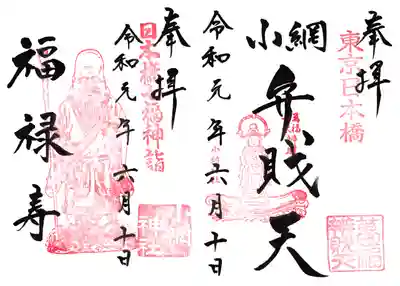 奉拝
東京日本橋
小網
弁財天
萬福
舞財天
令和元年六月十日
奉拝
日本橋七福神詣
福禄寿
小網
神社
令和元年六月十日